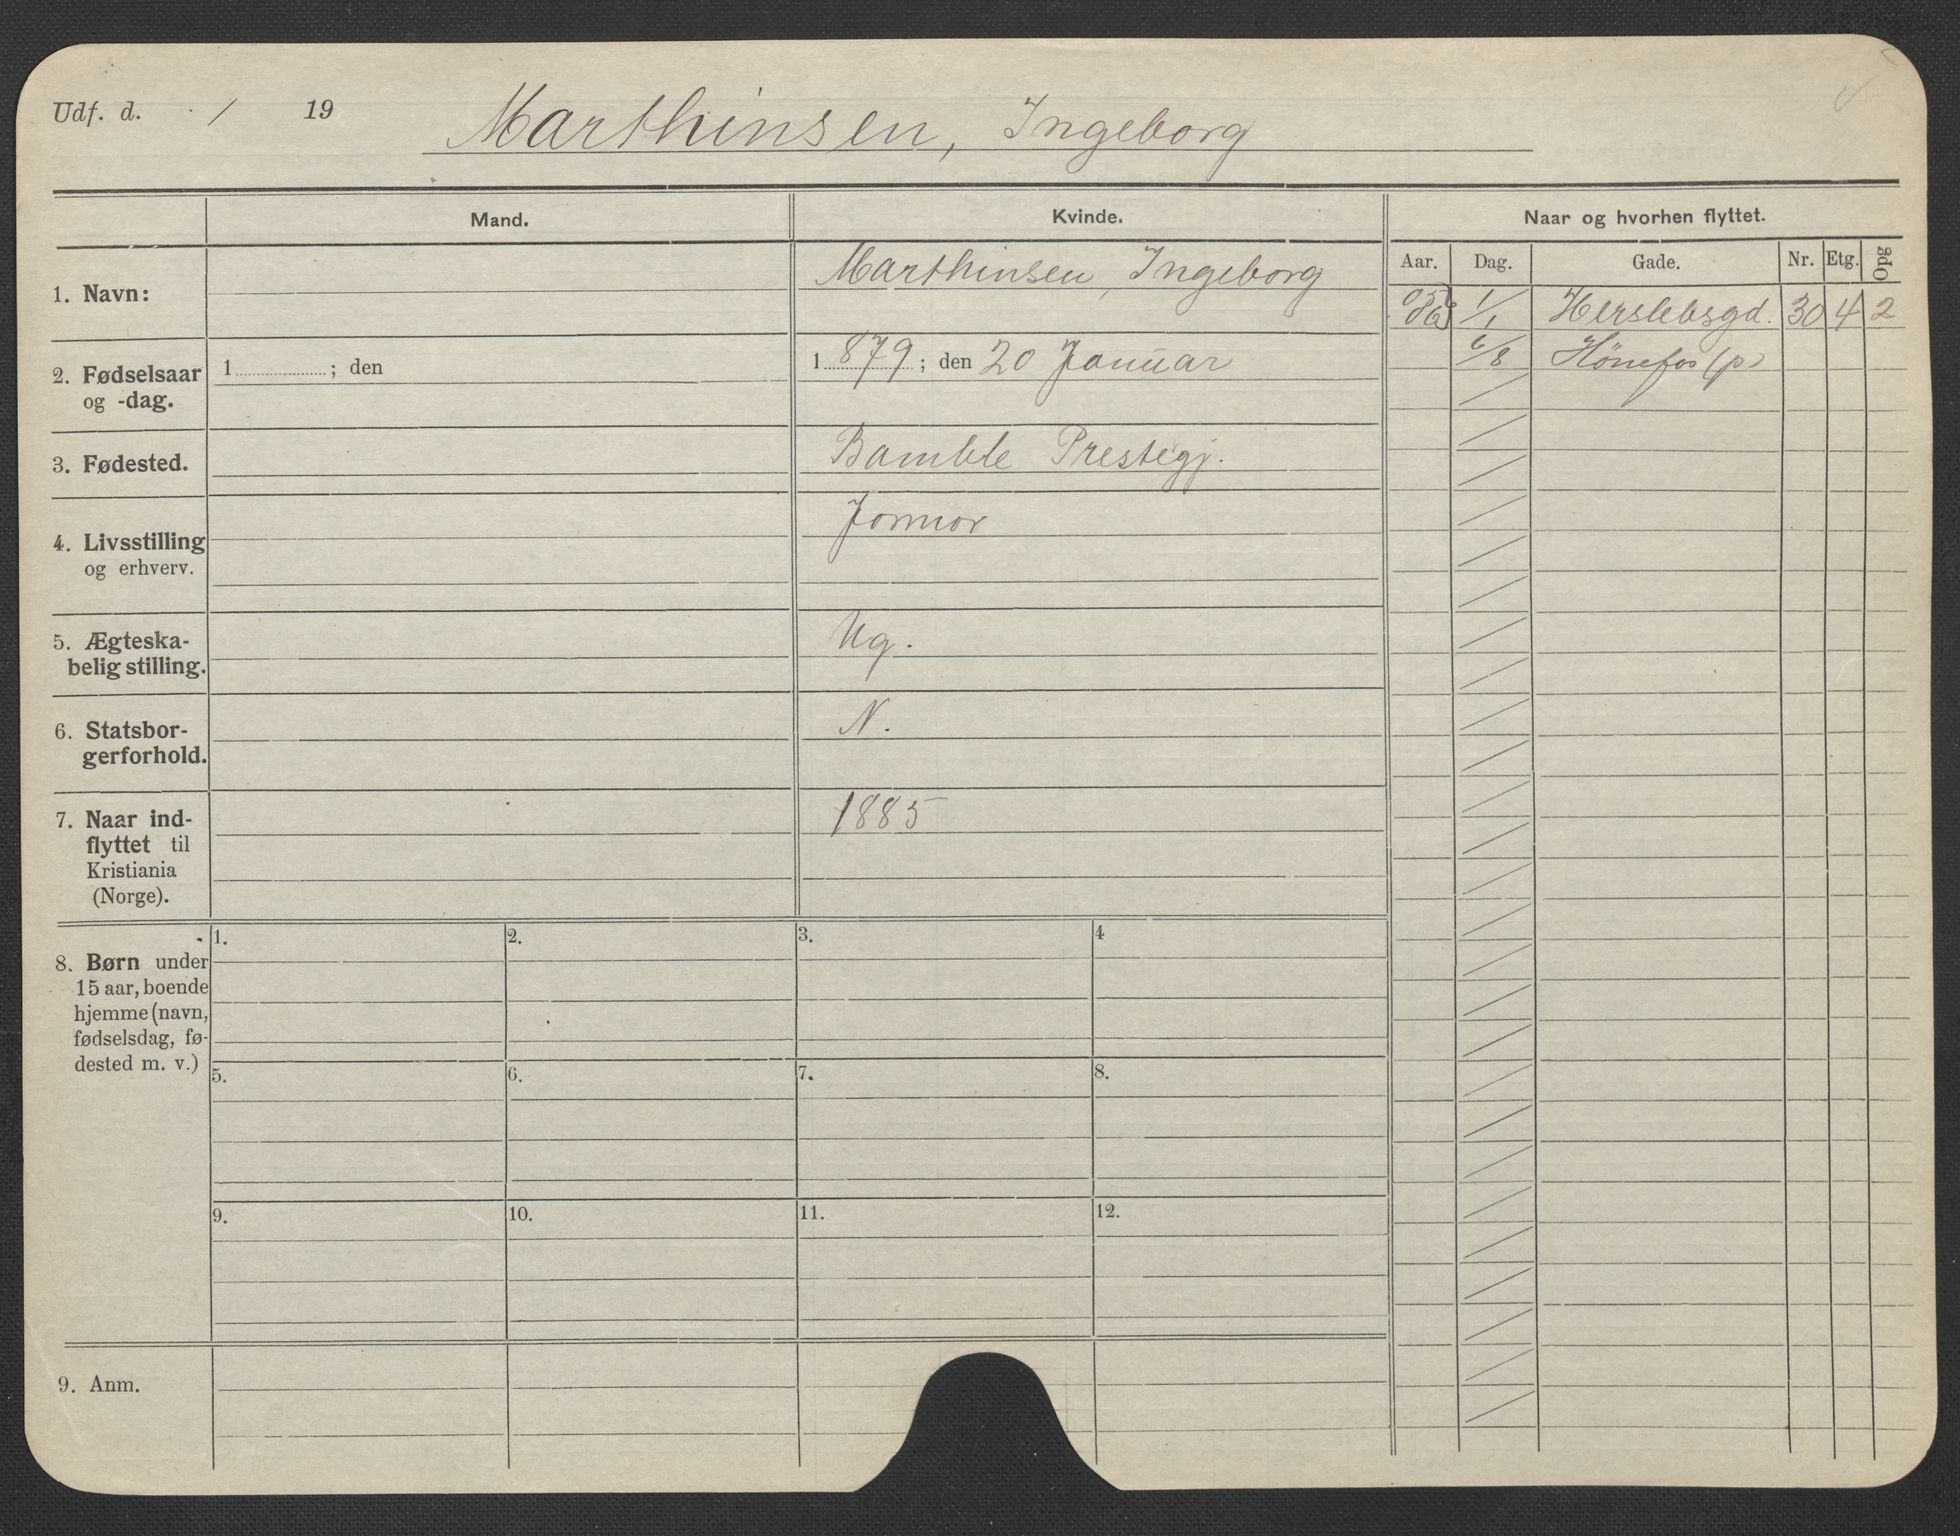 Udf. d. / 19 Marthinsen, Ingeborg
Mand. Kvinde. Naar og hvorhen flyttet.
Aar. Dag. Gade. Nr. Etg. Opg
1. Navn: Marthinsen, Ingeborg
1/1 Herslebsgd. 30 4 2
6/8 Hønefos (p)
2. Fødselsaar
og -dag.
1 ; den
1879; den 20 Januar
3. Fødested. Bamble Prestegj.
4. Livsstilling
og erhverv.
Jormor
5. Ægteska-
belig stilling.
Ug.
6. Statsbor-
gerforhold.
N.
7. Naar ind-
flyttet til
Kristiania
(Norge).
1885
8. Børn under
15 aar, boende
hjemme (navn,
fødselsdag, fø-
dested m. v.)
1. 2. 3. 4
5. 6. 7. 8.
9. 10. 11. 12.
9. Anm.